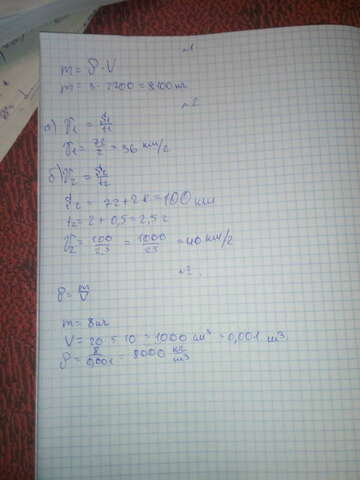 №1
m = ρ · V
m = 3 · 2700 = 8100 кг
№2
а) V₁ = S₁/t₁
V₁ = 72/2 = 36 км/г
б) V₂ = S₂/t₂
S₂ = 72 + 28 = 100 км
t₂ = 2 + 0,5 = 2,5 г
V₂ = 100/2,5 = 1000/25 = 40 км/г
ρ = m/V
m = 8 кг
V = 20 · 5 · 10 = 1000 см³ = 0,001 м³
ρ = 8/0,001 = 8000 кг/м³